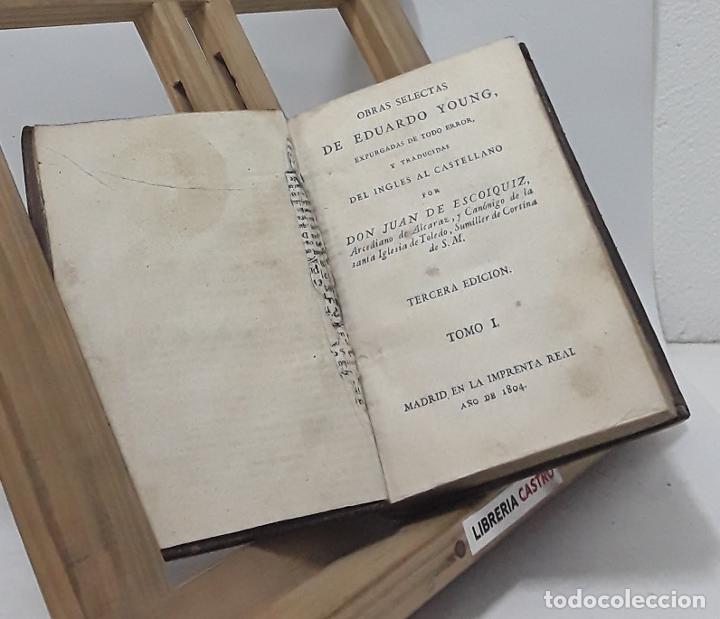 OBRAS SELECTAS
DE EDUARDO YOUNG,
EXPURGADAS DE TODO ERROR,
Y TRADUCIDAS
DEL INGLES AL CASTELLANO
POR
DON JUAN DE ESCOIQUIZ,
Arcediano de Alcaraz, y Canónigo de la
santa Iglesia de Toledo, Sumiller de Cortina
de S. M.
TERCERA EDICION.
TOMO I.
MADRID, EN LA IMPRENTA REAL
AÑO DE 1804.
LIBRERIA CASTRO
todocoleccion